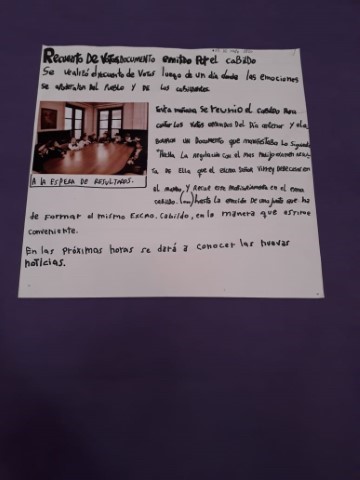 Recuento De Votos DOCUMENTO emitido Por el cabildo
Se realizó el recuento de Votos luego de un día donde las emociones
se apoderaron del Pueblo y de los cabildantes.
Esta mañana se reunió el cabildo Para
contar los Votos Del Día anterior y
un Documento que lo siguiente
Hecha La regulación con el mas examen
De Ella que el Señor Virrey Debe cesar en
el mando, y Recae en el
cabildo (...) hasta la de una junta que ha
de formar el mismo Excmo. Cabildo, en la manera que estime
conveniente.
A la espera de resultados.
En las próximas horas se dará a conocer las nuevas
noticias.